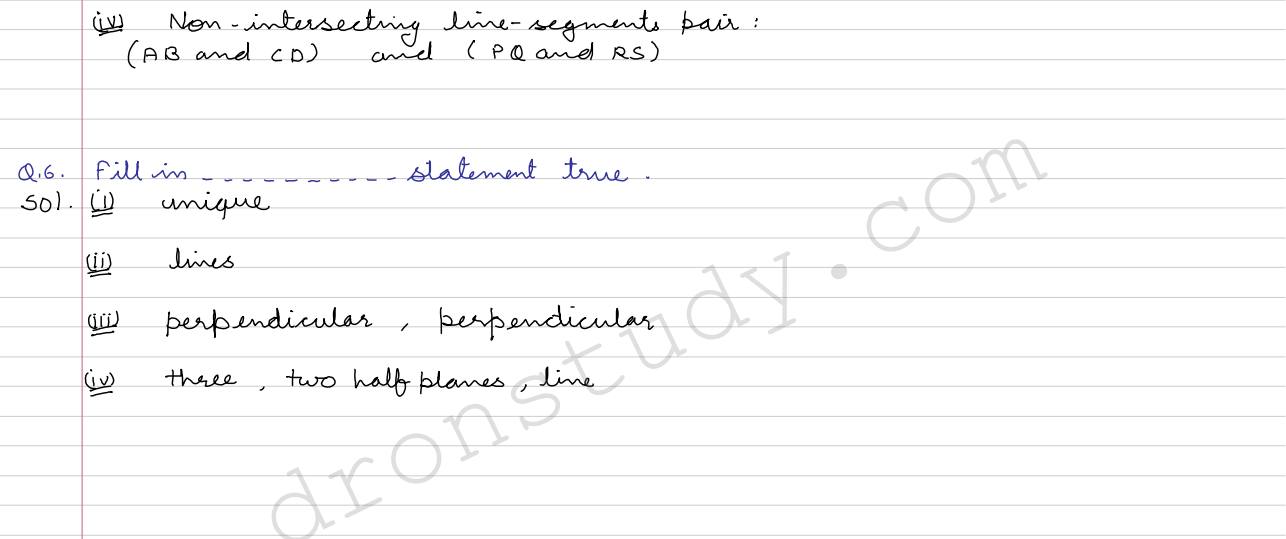 (iv) Non-intersecting line-segments pair :
(AB and CD) and (PQ and RS)
Q.6. Fill in ---------- statement true.
Sol. (i) unique
(ii) lines
(iii) perpendicular, perpendicular
(iv) three, two half planes, line
dronstudy.com